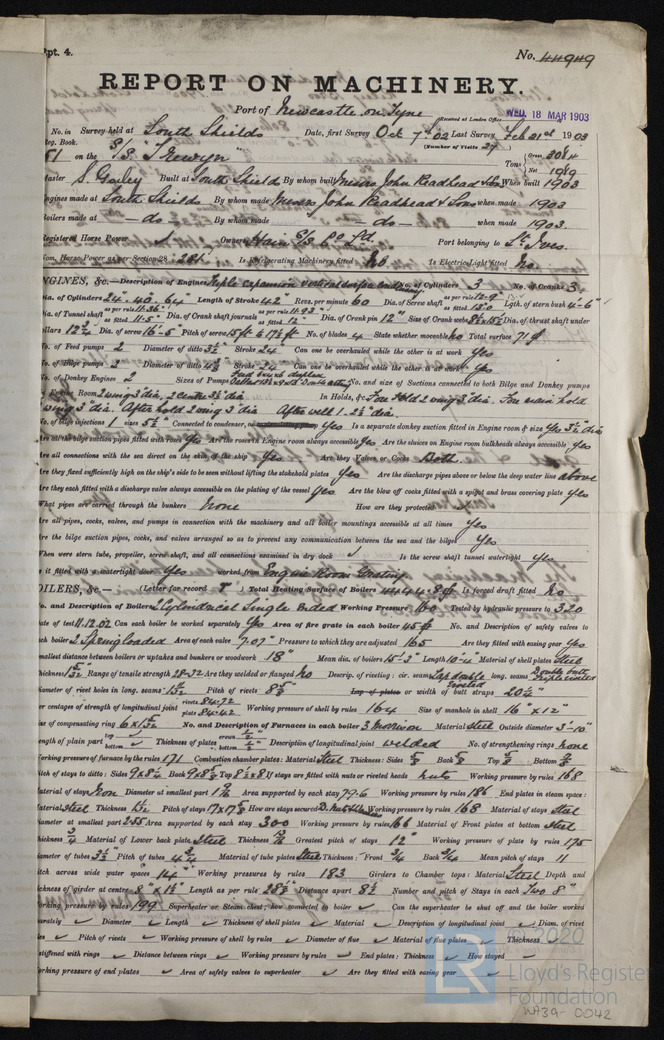 Rpt. 4.
No. 44949
REPORT ON MACHINERY.
Port of Newcastle on Tyne
Received at London Office WED. 18 MAR 1903
No. in Survey held at South Shields Date, first Survey Oct 7th 02 Last Survey Feb 21st 1903
Reg. Book. (Number of Visits 27)
51 on the S/S "Trewyn" Tons Gross 3084 Net 1989
Master S. Gorley Built at South Shields By whom built Messrs John Readhead & Sons When built 1903
Engines made at South Shields By whom made Messrs John Readhead & Sons when made 1903
Boilers made at — do — By whom made — do — when made 1903
Registered Horse Power Owners Hain S/S Co Ld. Port belonging to St Ives.
Nom. Horse Power as per Section 28 284 Is Refrigerating Machinery fitted No Is Electric Light fitted No
ENGINES, &c.—Description of Engines Triple expansion No. of Cylinders 3 No. of Cranks 3
Dia. of Cylinders 24-40-64 Length of Stroke 42" Revs. per minute 60 Dia. of Screw shaft as per rule 12-9 as fitted 13.0 Lgth. of stern bush 4-6"
Dia. of Tunnel shaft as per rule 11.36" as fitted 11.5" Dia. of Crank shaft journals as per rule 11.93" as fitted 12" Dia. of Crank pin 12" Size of Crank webs Dia. of thrust shaft under
collars 12¼ Dia. of screw 16'-5" Pitch of screw No. of blades 4 State whether moveable No Total surface 71 ft
No. of Feed pumps 2 Diameter of ditto 3½ Stroke 24" Can one be overhauled while the other is at work Yes
No. of Bilge pumps 2 Diameter of ditto Stroke 24 Can one be overhauled while the other is at work Yes
No. of Donkey Engines 2 Sizes of Pumps No. and size of Suctions connected to both Bilge and Donkey pumps
In Engine Room 2 wing 3" dia, 2 centre 3½ dia In Holds, &c. Fore Hold 2 wing 3" dia. Fore main hold
2 wing 3" dia. After hold 2 wing 3" dia After well 1. 2½ dia.
No. of bilge injections 1 sizes 5½" Connected to condenser, or Yes Is a separate donkey suction fitted in Engine room & size Yes 3½ dia
Are all the bilge suction pipes fitted with roses Yes Are the roses in Engine room always accessible Yes Are the sluices on Engine room bulkheads always accessible Yes
Are all connections with the sea direct on the skin of the ship Yes Are they Valves or Cocks Both
Are they fixed sufficiently high on the ship's side to be seen without lifting the stokehold plates Yes Are the discharge pipes above or below the deep water line above
Are they each fitted with a discharge valve always accessible on the plating of the vessel Yes Are the blow off cocks fitted with a spigot and brass covering plate Yes
What pipes are carried through the bunkers None How are they protected
Are all pipes, cocks, valves, and pumps in connection with the machinery and all boiler mountings accessible at all times Yes
Are the bilge suction pipes, cocks, and valves arranged so as to prevent any communication between the sea and the bilges Yes
When were stern tube, propeller, screw shaft, and all connections examined in dry dock ✓ Is the screw shaft tunnel watertight Yes
Is it fitted with a watertight door Yes worked from Engine Room Grating
BOILERS, &c.— (Letter for record T) Total Heating Surface of Boilers Is forced draft fitted No
No. and Description of Boilers 2 Cylindrical Single Ended Working Pressure 160 Tested by hydraulic pressure to 320
Date of test 11.12.02 Can each boiler be worked separately Yes Area of fire grate in each boiler 45 ft No. and Description of safety valves to
each boiler 2 Spring loaded Area of each valve 7.07" Pressure to which they are adjusted 165 Are they fitted with easing gear Yes
Smallest distance between boilers or uptakes and bunkers or woodwork 18" Mean dia. of boilers 15'-3" Length 10'-4" Material of shell plates Steel
Thickness 1 5/32 Range of tensile strength 28-32 Are they welded or flanged No Descrip. of riveting: cir. seams Lap double riveted long. seams Double butt Triple riveted
Diameter of rivet holes in long. seams 1 5/32 Pitch of rivets 8 5/8 Lap of plates or width of butt straps 20¼"
Per centages of strength of longitudinal joint rivets 84.72 plate 84.42 Working pressure of shell by rules 164 Size of manhole in shell 16" x 12"
Size of compensating ring 6 x 1 5/32 No. and Description of Furnaces in each boiler 3 Morrison Material Steel Outside diameter 3'-10"
Length of plain part top bottom Thickness of plates crown ½" bottom ½" Description of longitudinal joint welded No. of strengthening rings none
Working pressure of furnace by the rules 171 Combustion chamber plates: Material Steel Thickness: Sides 5/8 Back 5/8 Top 5/8 Bottom
Pitch of stays to ditto: Sides Back Top If stays are fitted with nuts or riveted heads nuts Working pressure by rules 168
Material of stays Iron Diameter at smallest part Area supported by each stay 79.6 Working pressure by rules 186 End plates in steam space:
Material Steel Thickness Pitch of stays How are stays secured D. Nuts & Washers Working pressure by rules 168 Material of stays Steel
Diameter at smallest part 2.55 Area supported by each stay 300 Working pressure by rules 166 Material of Front plates at bottom Steel
Thickness ¾ Material of Lower back plate Steel Thickness Greatest pitch of stays 12" Working pressure of plate by rules 175
Diameter of tubes 3½" Pitch of tubes 4¾ Material of tube plates Steel Thickness: Front ¾ Back ¾ Mean pitch of stays 11
Pitch across wide water spaces 14" Working pressures by rules 183 Girders to Chamber tops: Material Steel Depth and
thickness of girder at centre 8" x 1½ Length as per rule 28½ Distance apart 8½ Number and pitch of Stays in each Two 8"
Working pressure by rules 199 Superheater or Steam chest; how connected to boiler ✓ Can the superheater be shut off and the boiler worked
separately ✓ Diameter ✓ Length ✓ Thickness of shell plates ✓ Material ✓ Description of longitudinal joint ✓ Diam. of rivet
holes ✓ Pitch of rivets ✓ Working pressure of shell by rules ✓ Diameter of flue ✓ Material of flue plates ✓ Thickness ✓
If stiffened with rings ✓ Distance between rings ✓ Working pressure by rules ✓ End plates: Thickness ✓ How stayed ✓
Working pressure of end plates ✓ Area of safety valves to superheater ✓ Are they fitted with easing gear ✓
LR © 2020
Lloyd's Register
Foundation
WA39-0042